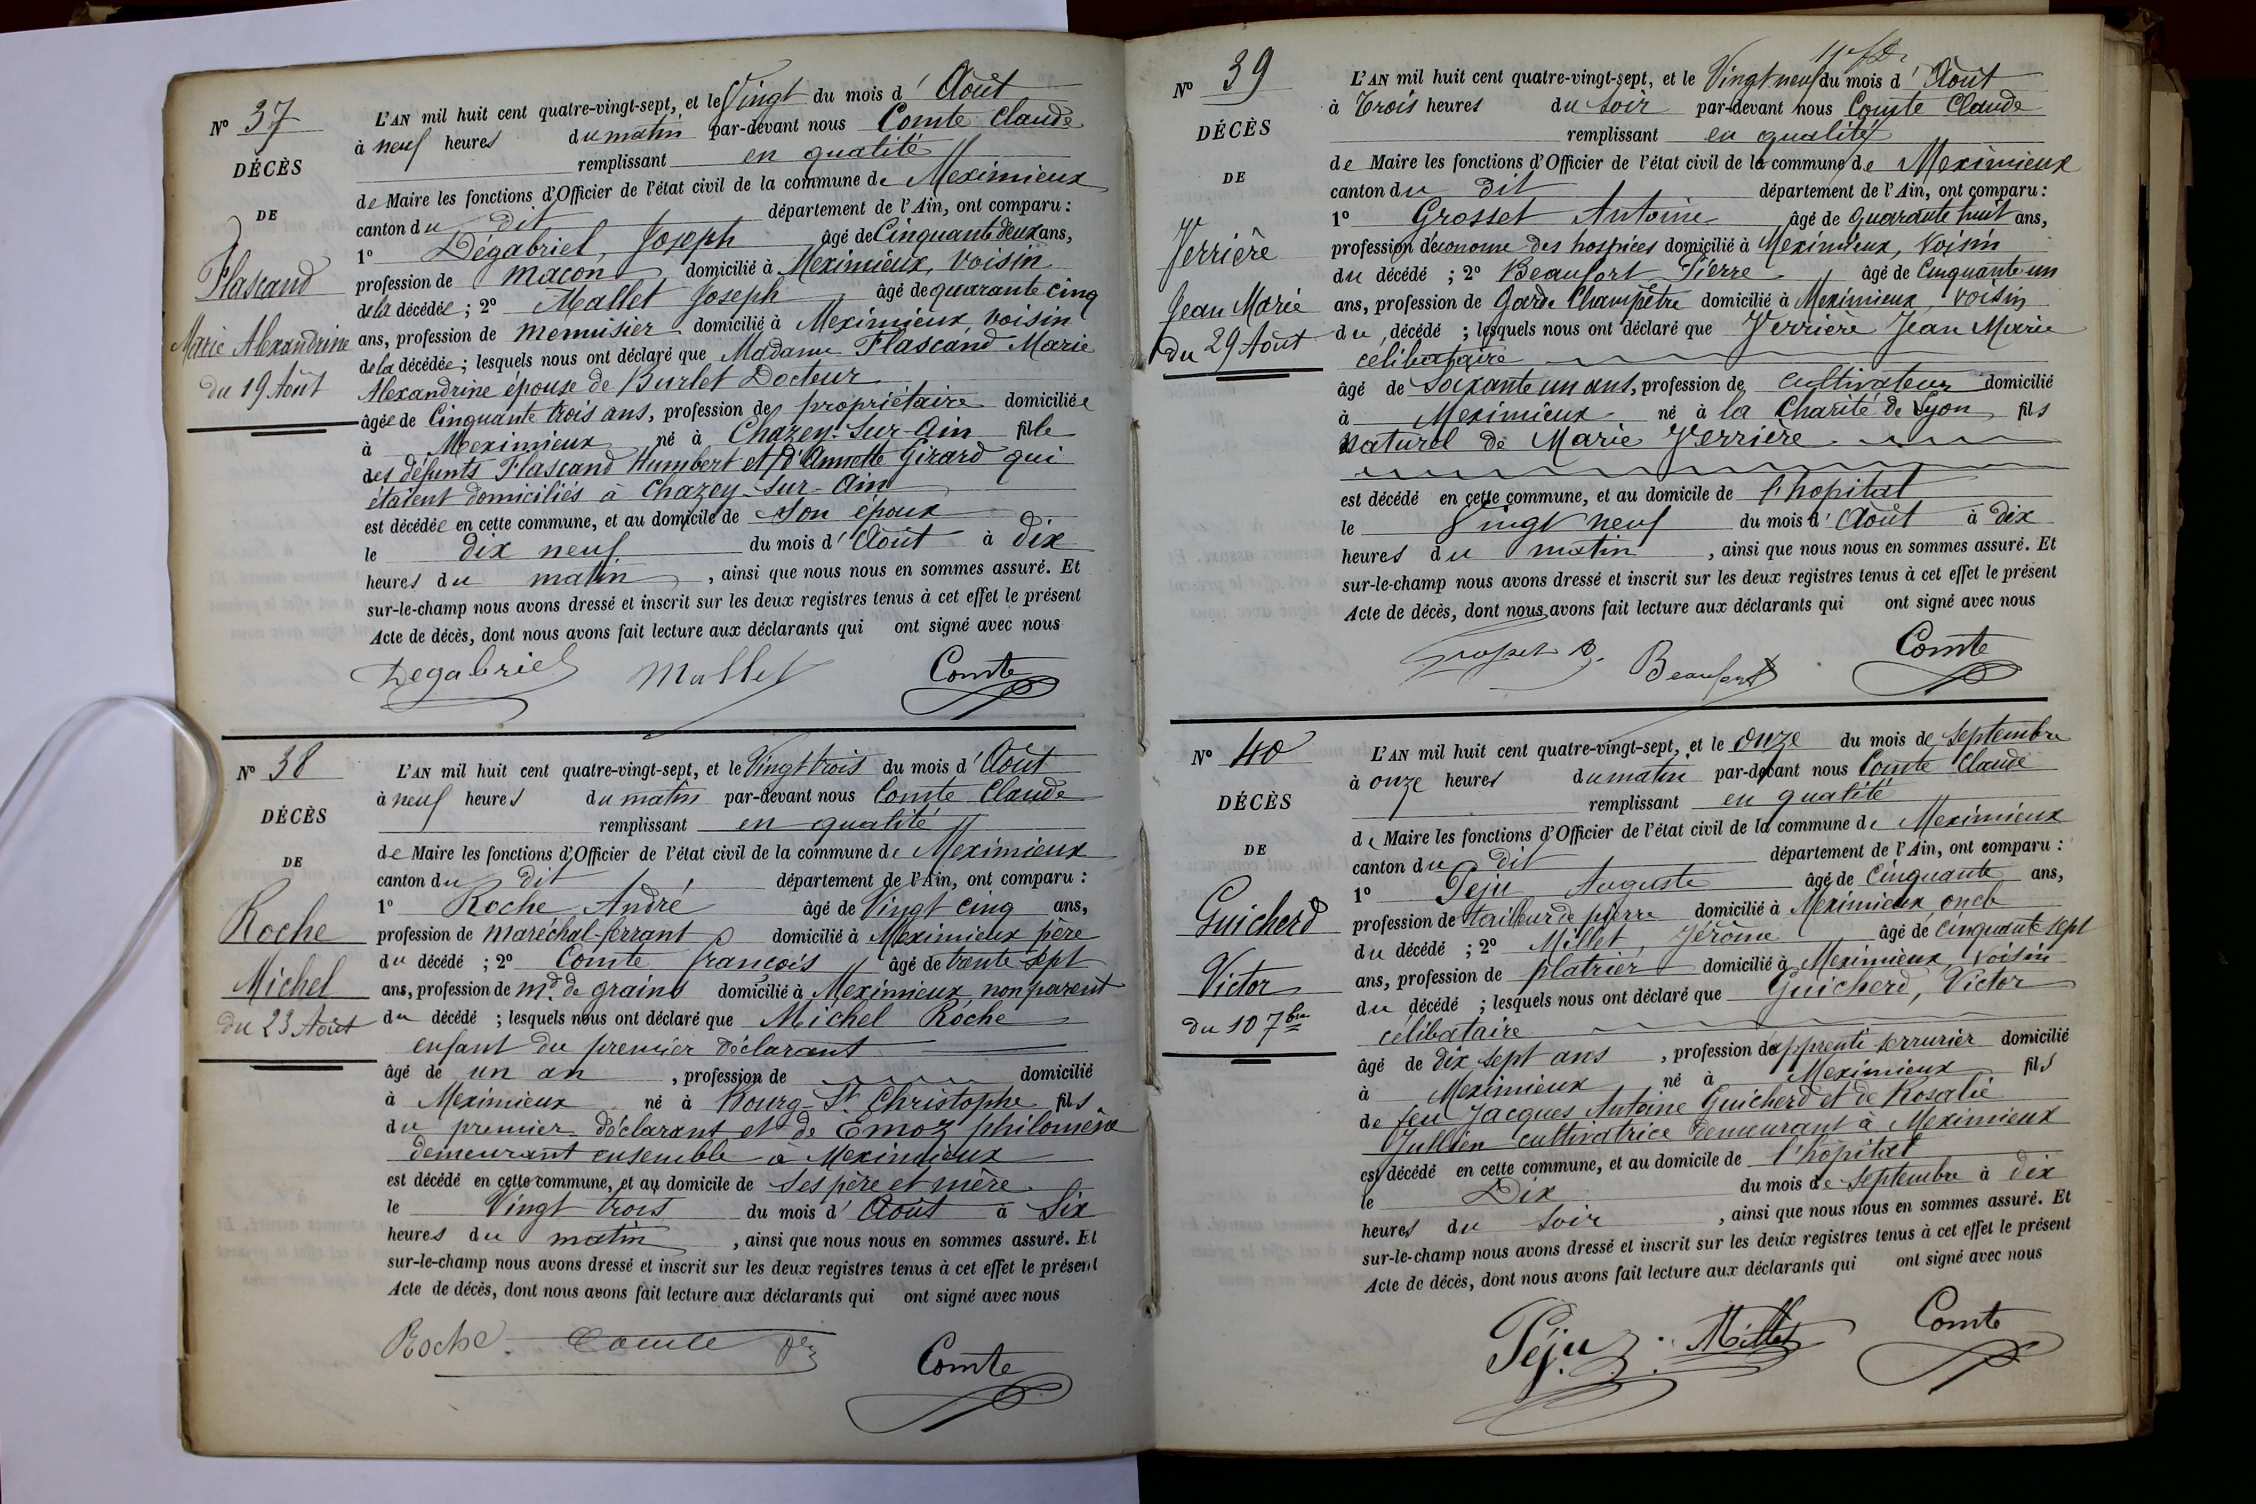 N° 37
DÉCÈS
DE
Flascand
Marie Alexandrine
du 19 Août
L'AN mil huit cent quatre-vingt-sept, et le Vingt du mois d' Août
à neuf heures du matin par-devant nous Comte Claude
remplissant en qualité
de Maire les fonctions d'Officier de l'état civil de la commune de Meximieux
canton du dit département de l'Ain, ont comparu :
1° Dégabriel, Joseph âgé de Cinquante deux ans,
profession de maçon domicilié à Meximieux, voisin
de la décédée ; 2° Mallet Joseph âgé de quarante cinq
ans, profession de menuisier domicilié à Meximieux, voisin
de la décédée ; lesquels nous ont déclaré que Madame Flascand Marie
Alexandrine épouse de Burlet Docteur
âgée de Cinquante trois ans, profession de propriétaire domiciliée
à Meximieux né à Chazey-sur-Ain fille
des défunts Flascand Humbert et d'Annette Girard qui
étaient domiciliés à Chazey-sur-Ain
est décédée en cette commune, et au domicile de son époux
le dix neuf du mois d' Août à dix
heures du matin , ainsi que nous nous en sommes assuré. Et
sur-le-champ nous avons dressé et inscrit sur les deux registres tenus à cet effet le présent
Acte de décès, dont nous avons fait lecture aux déclarants qui ont signé avec nous
Degabriel Mallet Comte
N° 38
DÉCÈS
DE
Roche
Michel
du 23 Août
L'AN mil huit cent quatre-vingt-sept, et le Vingt trois du mois d' Août
à neuf heures du matin par-devant nous Comte Claude
remplissant en qualité
de Maire les fonctions d'Officier de l'état civil de la commune de Meximieux
canton du dit département de l'Ain, ont comparu :
1° Roche André âgé de Vingt cinq ans,
profession de maréchal-ferrant domicilié à Meximieux père
du décédé ; 2° Comte françois âgé de trente sept
ans, profession de md. de grains domicilié à Meximieux non parent
du décédé ; lesquels nous ont déclaré que Michel Roche
enfant du premier déclarant
âgé de un an , profession de domicilié
à Meximieux né à Bourg-St. Christophe fils
du premier déclarant et de Emoz philomène
demeurant ensemble à Meximieux
est décédé en cette commune, et au domicile de ses père et mère
le Vingt trois du mois d' Août à Six
heures du matin , ainsi que nous nous en sommes assuré. Et
sur-le-champ nous avons dressé et inscrit sur les deux registres tenus à cet effet le présent
Acte de décès, dont nous avons fait lecture aux déclarants qui ont signé avec nous
Roche Comte Comte
N° 39
DÉCÈS
DE
Verrière
Jean Marie
du 29 Août
L'AN mil huit cent quatre-vingt-sept, et le Vingt neuf du mois d' Août
à Trois heures du soir par-devant nous Comte Claude
remplissant en qualité
de Maire les fonctions d'Officier de l'état civil de la commune de Meximieux
canton du dit département de l'Ain, ont comparu :
1° Grosset Antoine âgé de quarante huit ans,
profession d'économe des hospices domicilié à Meximieux, voisin
du décédé ; 2° Beaufort Pierre âgé de Cinquante un
ans, profession de Garde Champêtre domicilié à Meximieux, voisin
du décédé ; lesquels nous ont déclaré que Verrière Jean Marie
célibataire
âgé de soixante un ans, profession de cultivateur domicilié
à Meximieux né à la Charité de Lyon fils
naturel de Marie Verrière
est décédé en cette commune, et au domicile de l'hopital
le Vingt neuf du mois d' Août à dix
heures du matin , ainsi que nous nous en sommes assuré. Et
sur-le-champ nous avons dressé et inscrit sur les deux registres tenus à cet effet le présent
Acte de décès, dont nous avons fait lecture aux déclarants qui ont signé avec nous
Grosset Beaufort Comte
N° 40
DÉCÈS
DE
Guicherd
Victor
du 10 7bre
L'AN mil huit cent quatre-vingt-sept, et le onze du mois de septembre
à onze heures du matin par-devant nous Comte Claude
remplissant en qualité
de Maire les fonctions d'Officier de l'état civil de la commune de Meximieux
canton du dit département de l'Ain, ont comparu :
1° Peju Auguste âgé de Cinquante ans,
profession de tailleur de pierre domicilié à Meximieux oncle
du décédé ; 2° Millet, Jérôme âgé de cinquante sept
ans, profession de platrier domicilié à Meximieux, voisin
du décédé ; lesquels nous ont déclaré que Guicherd, Victor
célibataire
âgé de dix sept ans , profession d'apprenti serrurier domicilié
à Meximieux né à Meximieux fils
de feu Jacques Antoine Guicherd et de Rosalie
Jullien cultivatrice demeurant à Meximieux
est décédé en cette commune, et au domicile de l'hopital
le Dix du mois de septembre à dix
heures du soir , ainsi que nous nous en sommes assuré. Et
sur-le-champ nous avons dressé et inscrit sur les deux registres tenus à cet effet le présent
Acte de décès, dont nous avons fait lecture aux déclarants qui ont signé avec nous
Péju Millet Comte